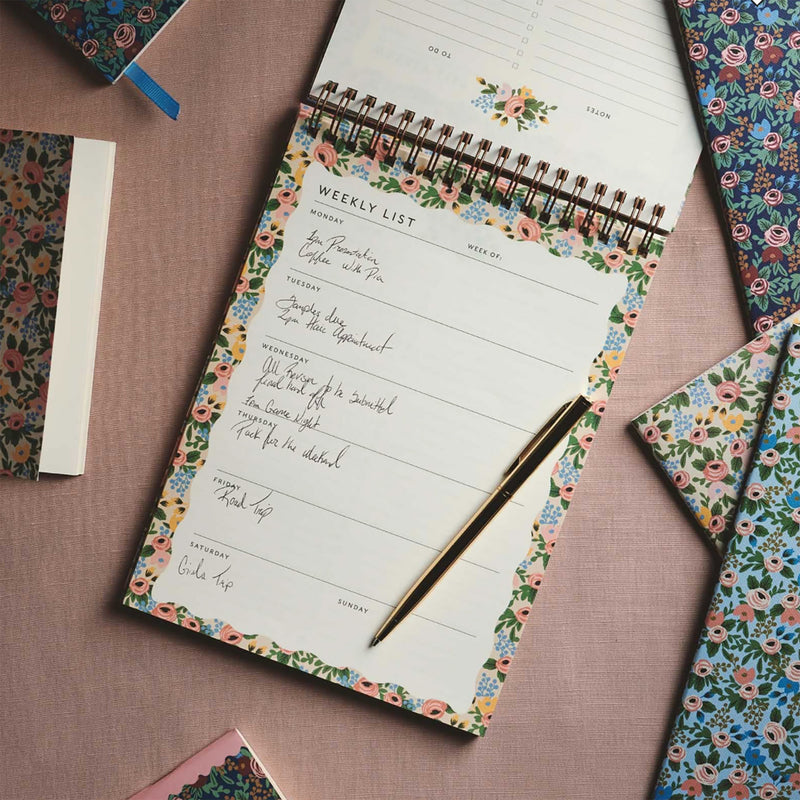 TO DO
NOTES
WEEKLY LIST
WEEK OF:
MONDAY
Presentation
Coffee with Pia
TUESDAY
Samples due
2pm Hair Appointment
WEDNESDAY
to be Submitted
Game Night
THURSDAY
Pack for the weekend
FRIDAY
Road Trip
SATURDAY
Girls Trip
SUNDAY